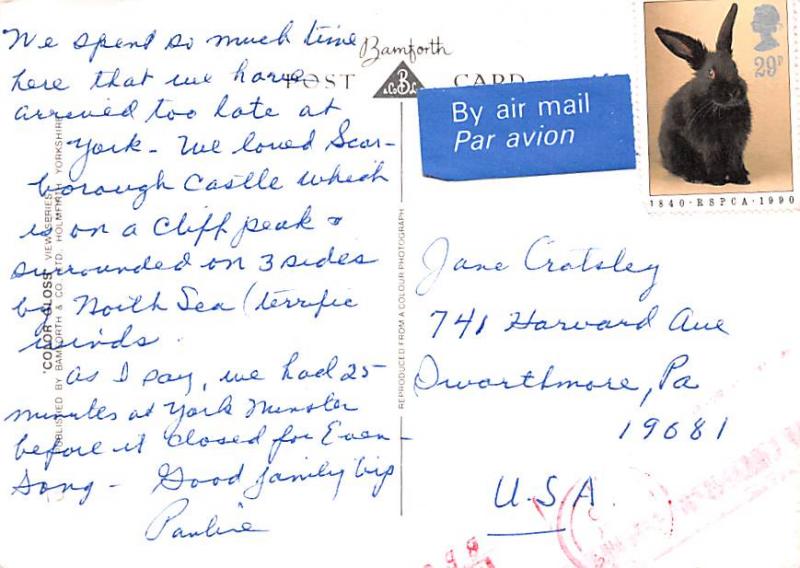 We spend so much time
here that we have
arrived too late at
York - We loved Scar-
borough Castle which
is on a cliff peak &
surrounded on 3 sides
by North Sea (terrific
winds.
As I say, we had 25
minutes at York Minster
before it closed for Even-
song - Good family trip
Pauline
Bamforth
POST CARD
"COLOR GLOSS" VIEW SERIES
PUBLISHED BY BAMFORTH & CO. LTD. HOLMFIRTH YORKSHIRE
REPRODUCED FROM A COLOUR PHOTOGRAPH
By air mail
Par avion
29p
1840 · RSPCA · 1990
Jane Cratsley
741 Harvard Ave
Swarthmore, Pa
19081
U.S.A.